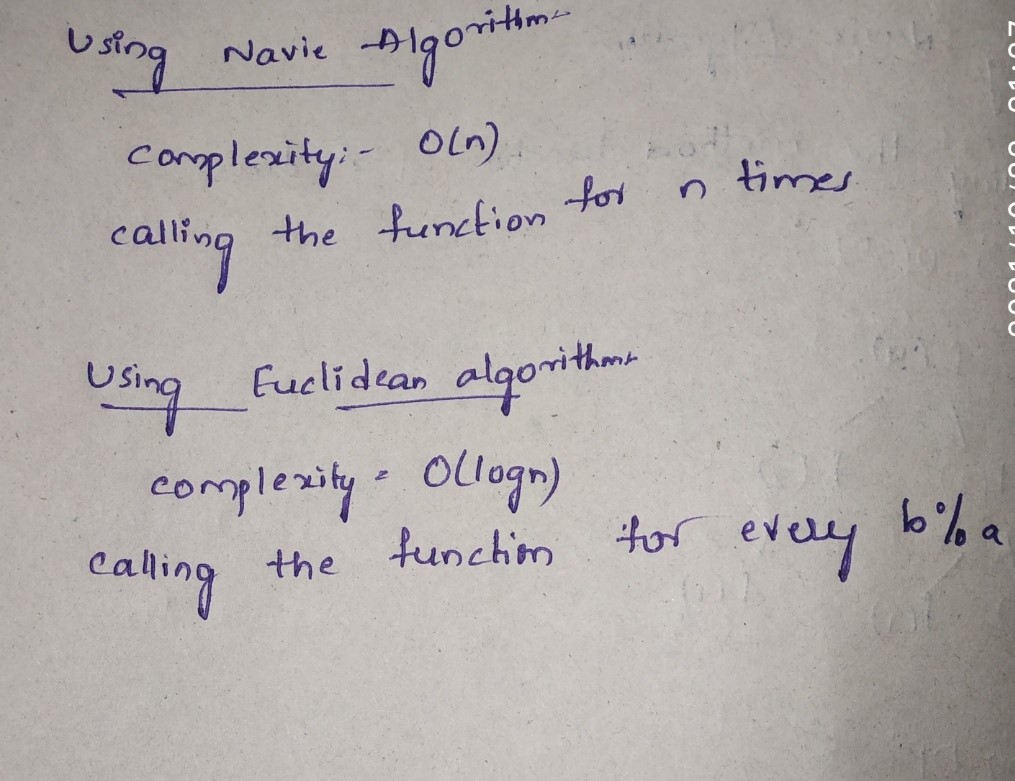 Using Navie Algorithm:-
complexity:- O(n)
calling the function for n times
Using Euclidean algorithm:-
complexity = O(logn)
calling the function for every b%a